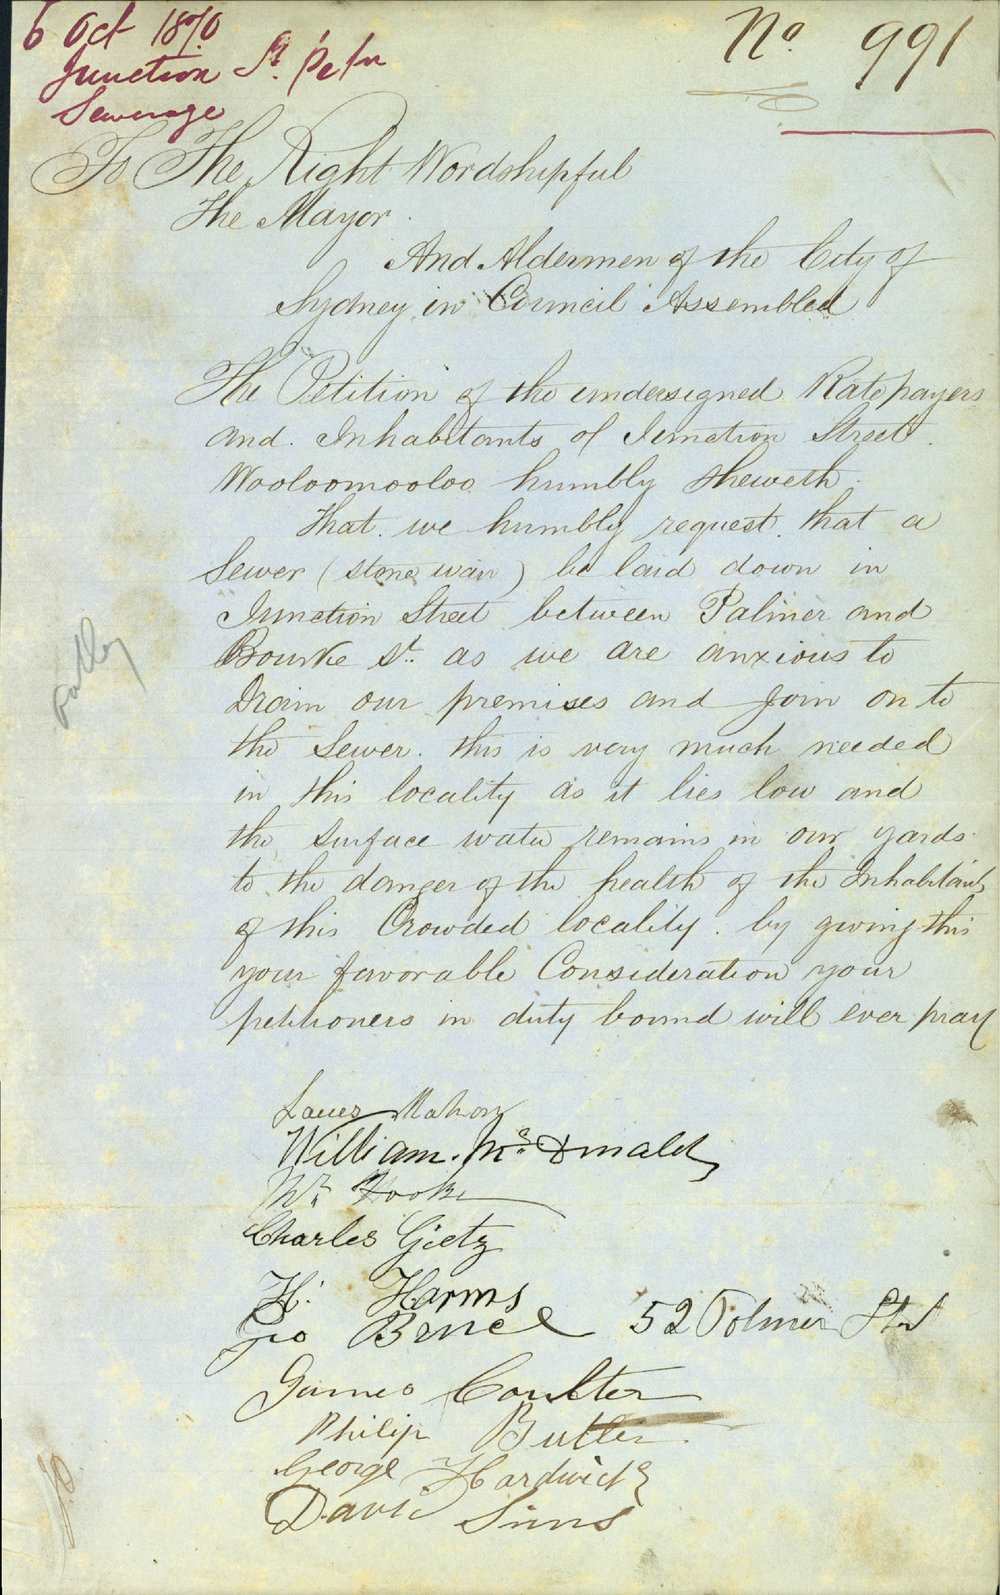 6 Oct 1870
Junction St. Petn
Sewerage
No 991
To The Right Wordshipful
The Mayor.
And Aldermen of the City of
Sydney in Council Assembled
The Petition of the undersigned Ratepayers
and. Inhabitants of Junction Street.
Wooloomooloo humbly sheweth.
That. we humbly request. that a
Sewer (stone wair) be laid down in
Junction Street between Palmer and
Bourke St. as we are anxious to
Drain our premises and join on to
the Sewer. this is very much needed
in this locality as it lies low and
the surface water remains in our yards
to the danger of the health of the Inhabitants
of this Crowded locality. by giving this
your favorable Consideration your
petitioners in duty bound will ever pray
Mahony
William. Mc Donald
Wm Hooke
Charles Gietz
H. Harms
Geo Bruce 52 Polmer Stt
James Coulter
Philip Butler.
George Hardwick
David Sims